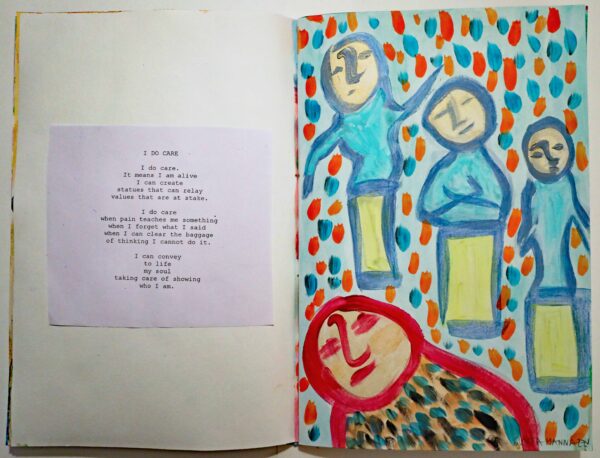 I DO CARE
I do care.
It means I am alive
I can create
statues that can relay
values that are at stake.
I do care
when pain teaches me something
when I forget what I said
when I can clear the baggage
of thinking I cannot do it.
I can convey
to life
my soul
taking care of showing
who I am.